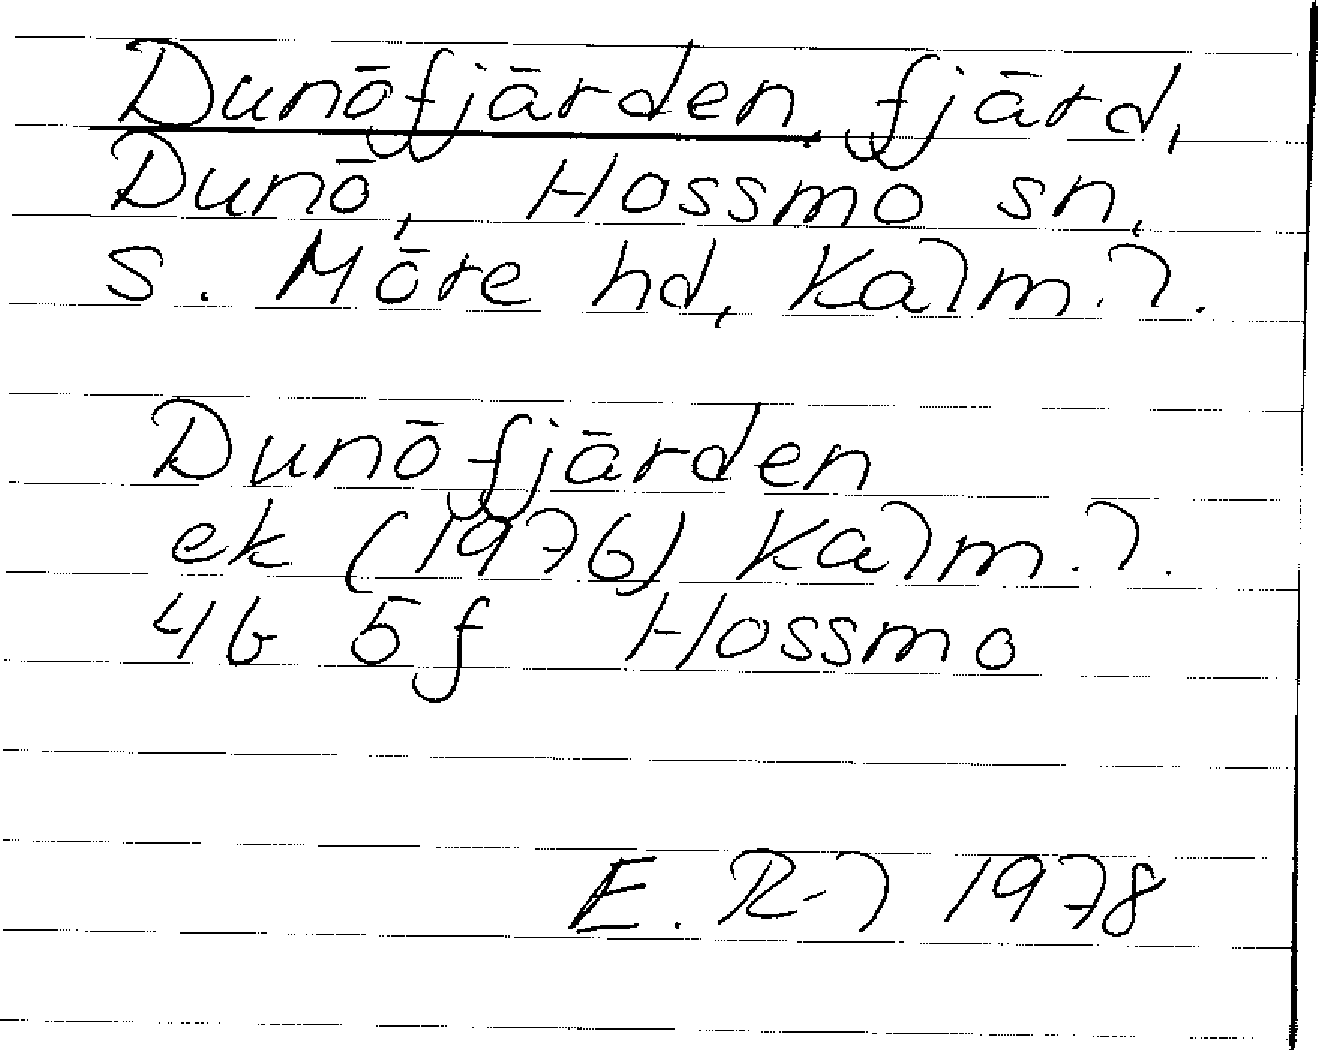 Dunöfjärden, fjärd,
Dunö, Hossmo sn,
S. Möre hd, Kalm. l.
Dunöfjärden
ek (1976) Kalm. l.
4G 5f Hossmo
E. R-l 1978